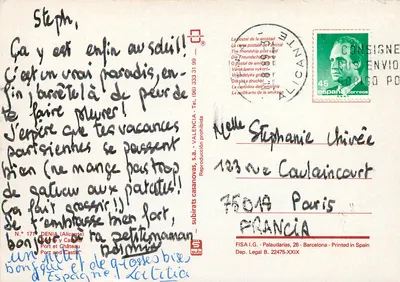 Steph,
Ça y est enfin au soleil!
C'est un vrai paradis, en-
fin j'arrête là de peur de
te faire pleurer!
J'espère que tes vacances
parisiennes se passent
bien (ne mange pas trop
de gateau aux patates!!
Ça fait grossir!!)
Je t'embrasse bien fort,
bonjour à ta petite maman
un peu
bonjour et de grosses bises
d'Espagne Laetitia
Nº 171 DENIA (Alicante)
Port et Château
subirats casanovas, s.a. - VALENCIA - Tel. (96) 333 31 99
Reproducción prohibida
La postal de la amistad
ALICANTE
CONSIGNE
ENVIO
GO PO
45
españa
correos
Melle Stephanie Chivée
133 rue Caulaincourt
75018 Paris
FRANCIA
FISA I.G. - Palaudarias, 26 - Barcelona - Printed in Spain
Dep. Legal B. 22475-XXIX